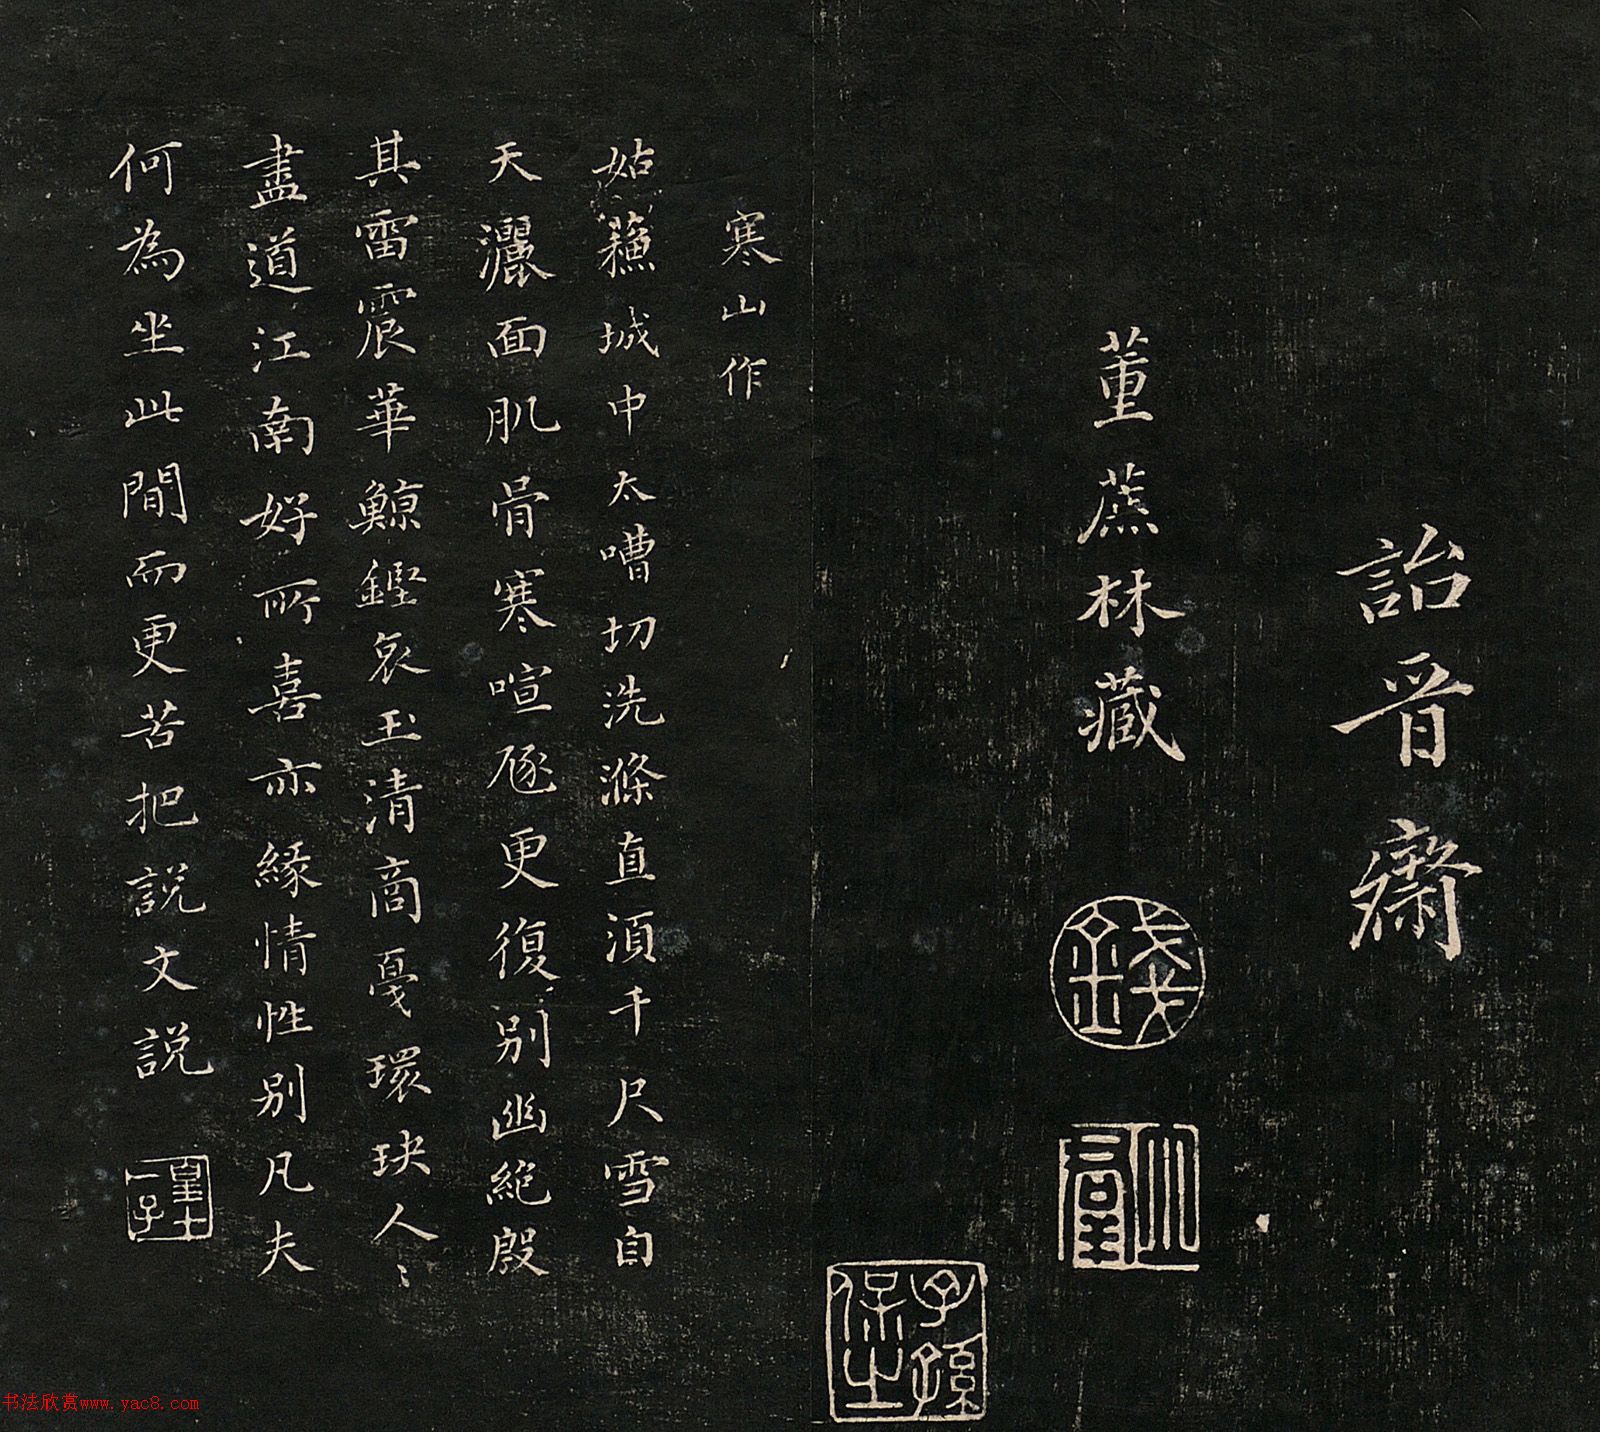 詒晉齋
董蔗林藏
錢
子孫保之
寒山作
姑蘇城中太嘈切洗滌直須千尺雪自
天灑面肌骨寒喧豗更復別幽絕殷
其雷震華鯨鏗哀玉清商戛環玦人〻
盡道江南好所喜亦緣情性別凡夫
何為坐此間而更苦把說文說
皇十一子
书法欣赏www.yac8.com